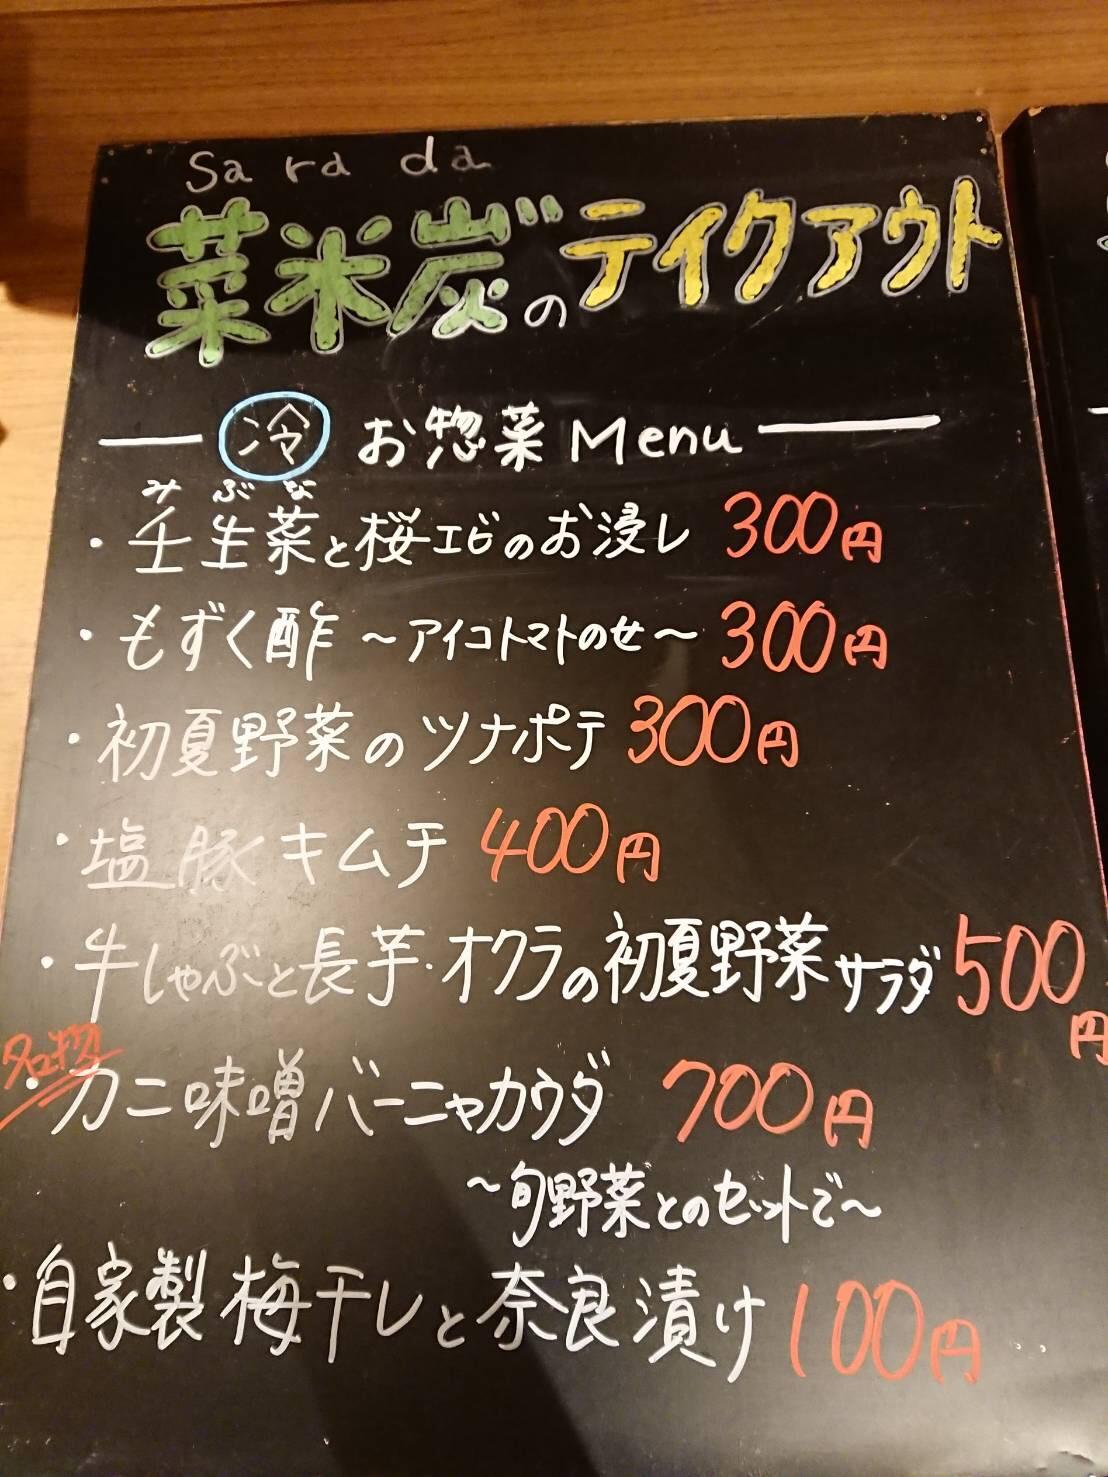 Sa ra da
菜米炭゛のテイクアウト
冷 お惣菜 Menu
みぶな
・壬生菜と桜エビのお浸し 300円
・もずく酢 ～アイコトマトのせ～ 300円
・初夏野菜のツナポテ 300円
・塩豚キムチ 400円
・牛しゃぶと長芋・オクラの初夏野菜サラダ 500円
名物
・カニ味噌バーニャカウダ 700円
～旬野菜とのセットで～
・自家製梅干しと奈良漬け 100円